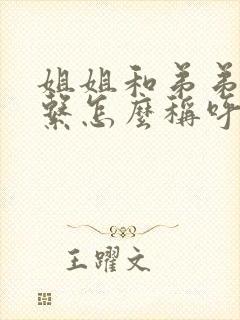 姐姐和弟弟
繫怎麼稱呼
王躍文